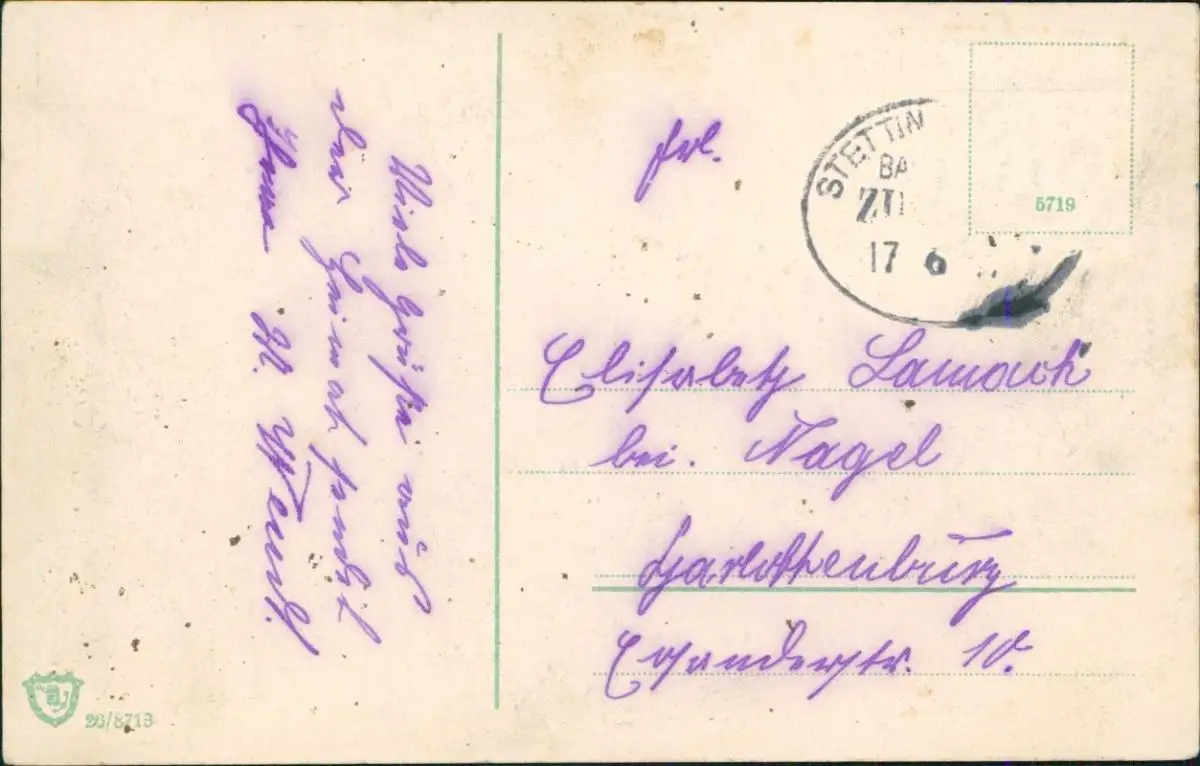 Viele Grüße aus
der Heimat sendet
Ihnen W. Wendt.
Frl.
STETTIN
BA
ZU
17 6
5719
Elisabeth Lamack
bei. Nagel
Charlottenburg
Eosanderstr. 10.
26/8713